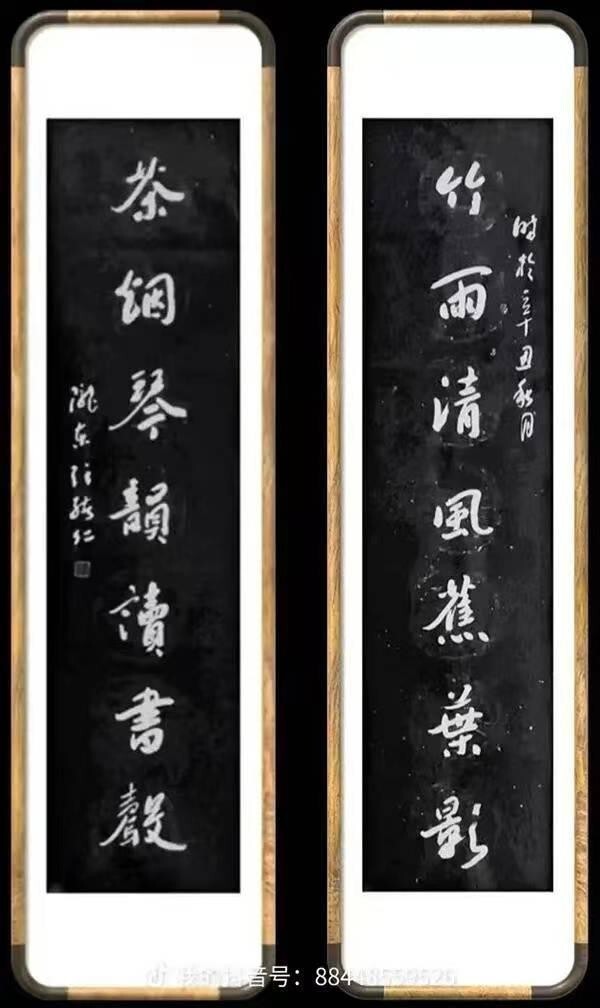 竹雨清風蕉葉影
時於辛丑秋月
茶烟琴韻讀書聲
隴東
仁
抖音号：88448559626